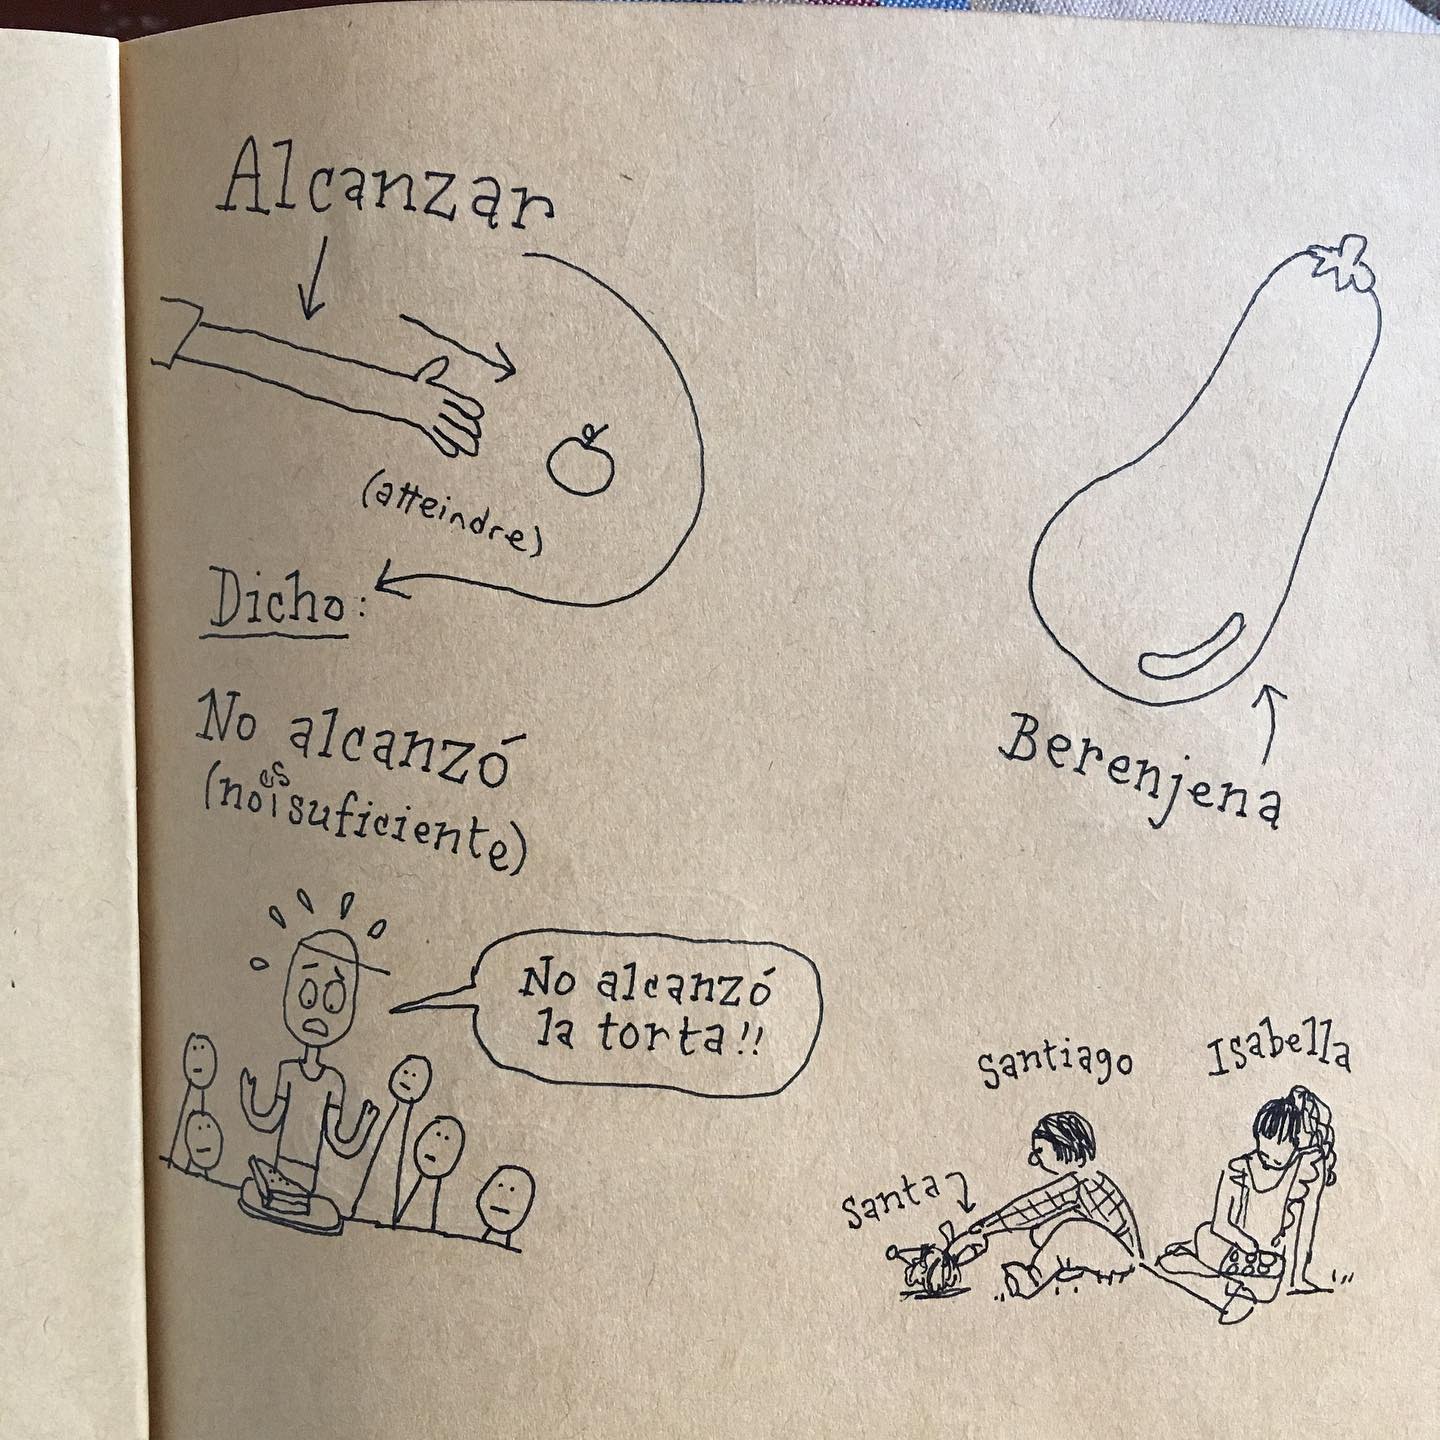 Alcanzar
(atteindre)
Dicho:
No alcanzó
(no es suficiente)
No alcanzó
la torta!!
Berenjena
Santiago
Isabella
Santa